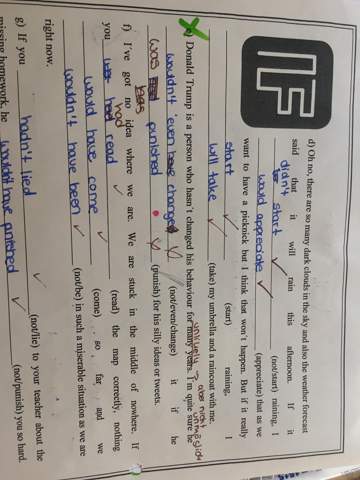 IF
d) Oh no, there are so many dark clouds in the sky and also the weather forecast
said that it will rain this afternoon. If it
didn't start (not/start) raining, I
would appreciate (appreciate) that as we
want to have a picknick but I think that won't happen. But if it really
start (start) raining, I
will take (take) my umbrella and a raincoat with me.
Donald Trump is a person who hasn't changed his behaviour for many years. I'm quite sure he
wouldn't even change (not/even/change) it if he
was punished (punish) for his silly ideas or tweets.
f) I've got no idea where we are. We are stuck in the middle of nowhere. If
you had read (read) the map correctly, nothing
would have come (come) so far and we
wouldn't have been (not/be) in such a miserable situation as we are
right now.
g) If you hadn't lied (not/lie) to your teacher about the
missing homework, he wouldn't have punished (not/punish) you so hard.